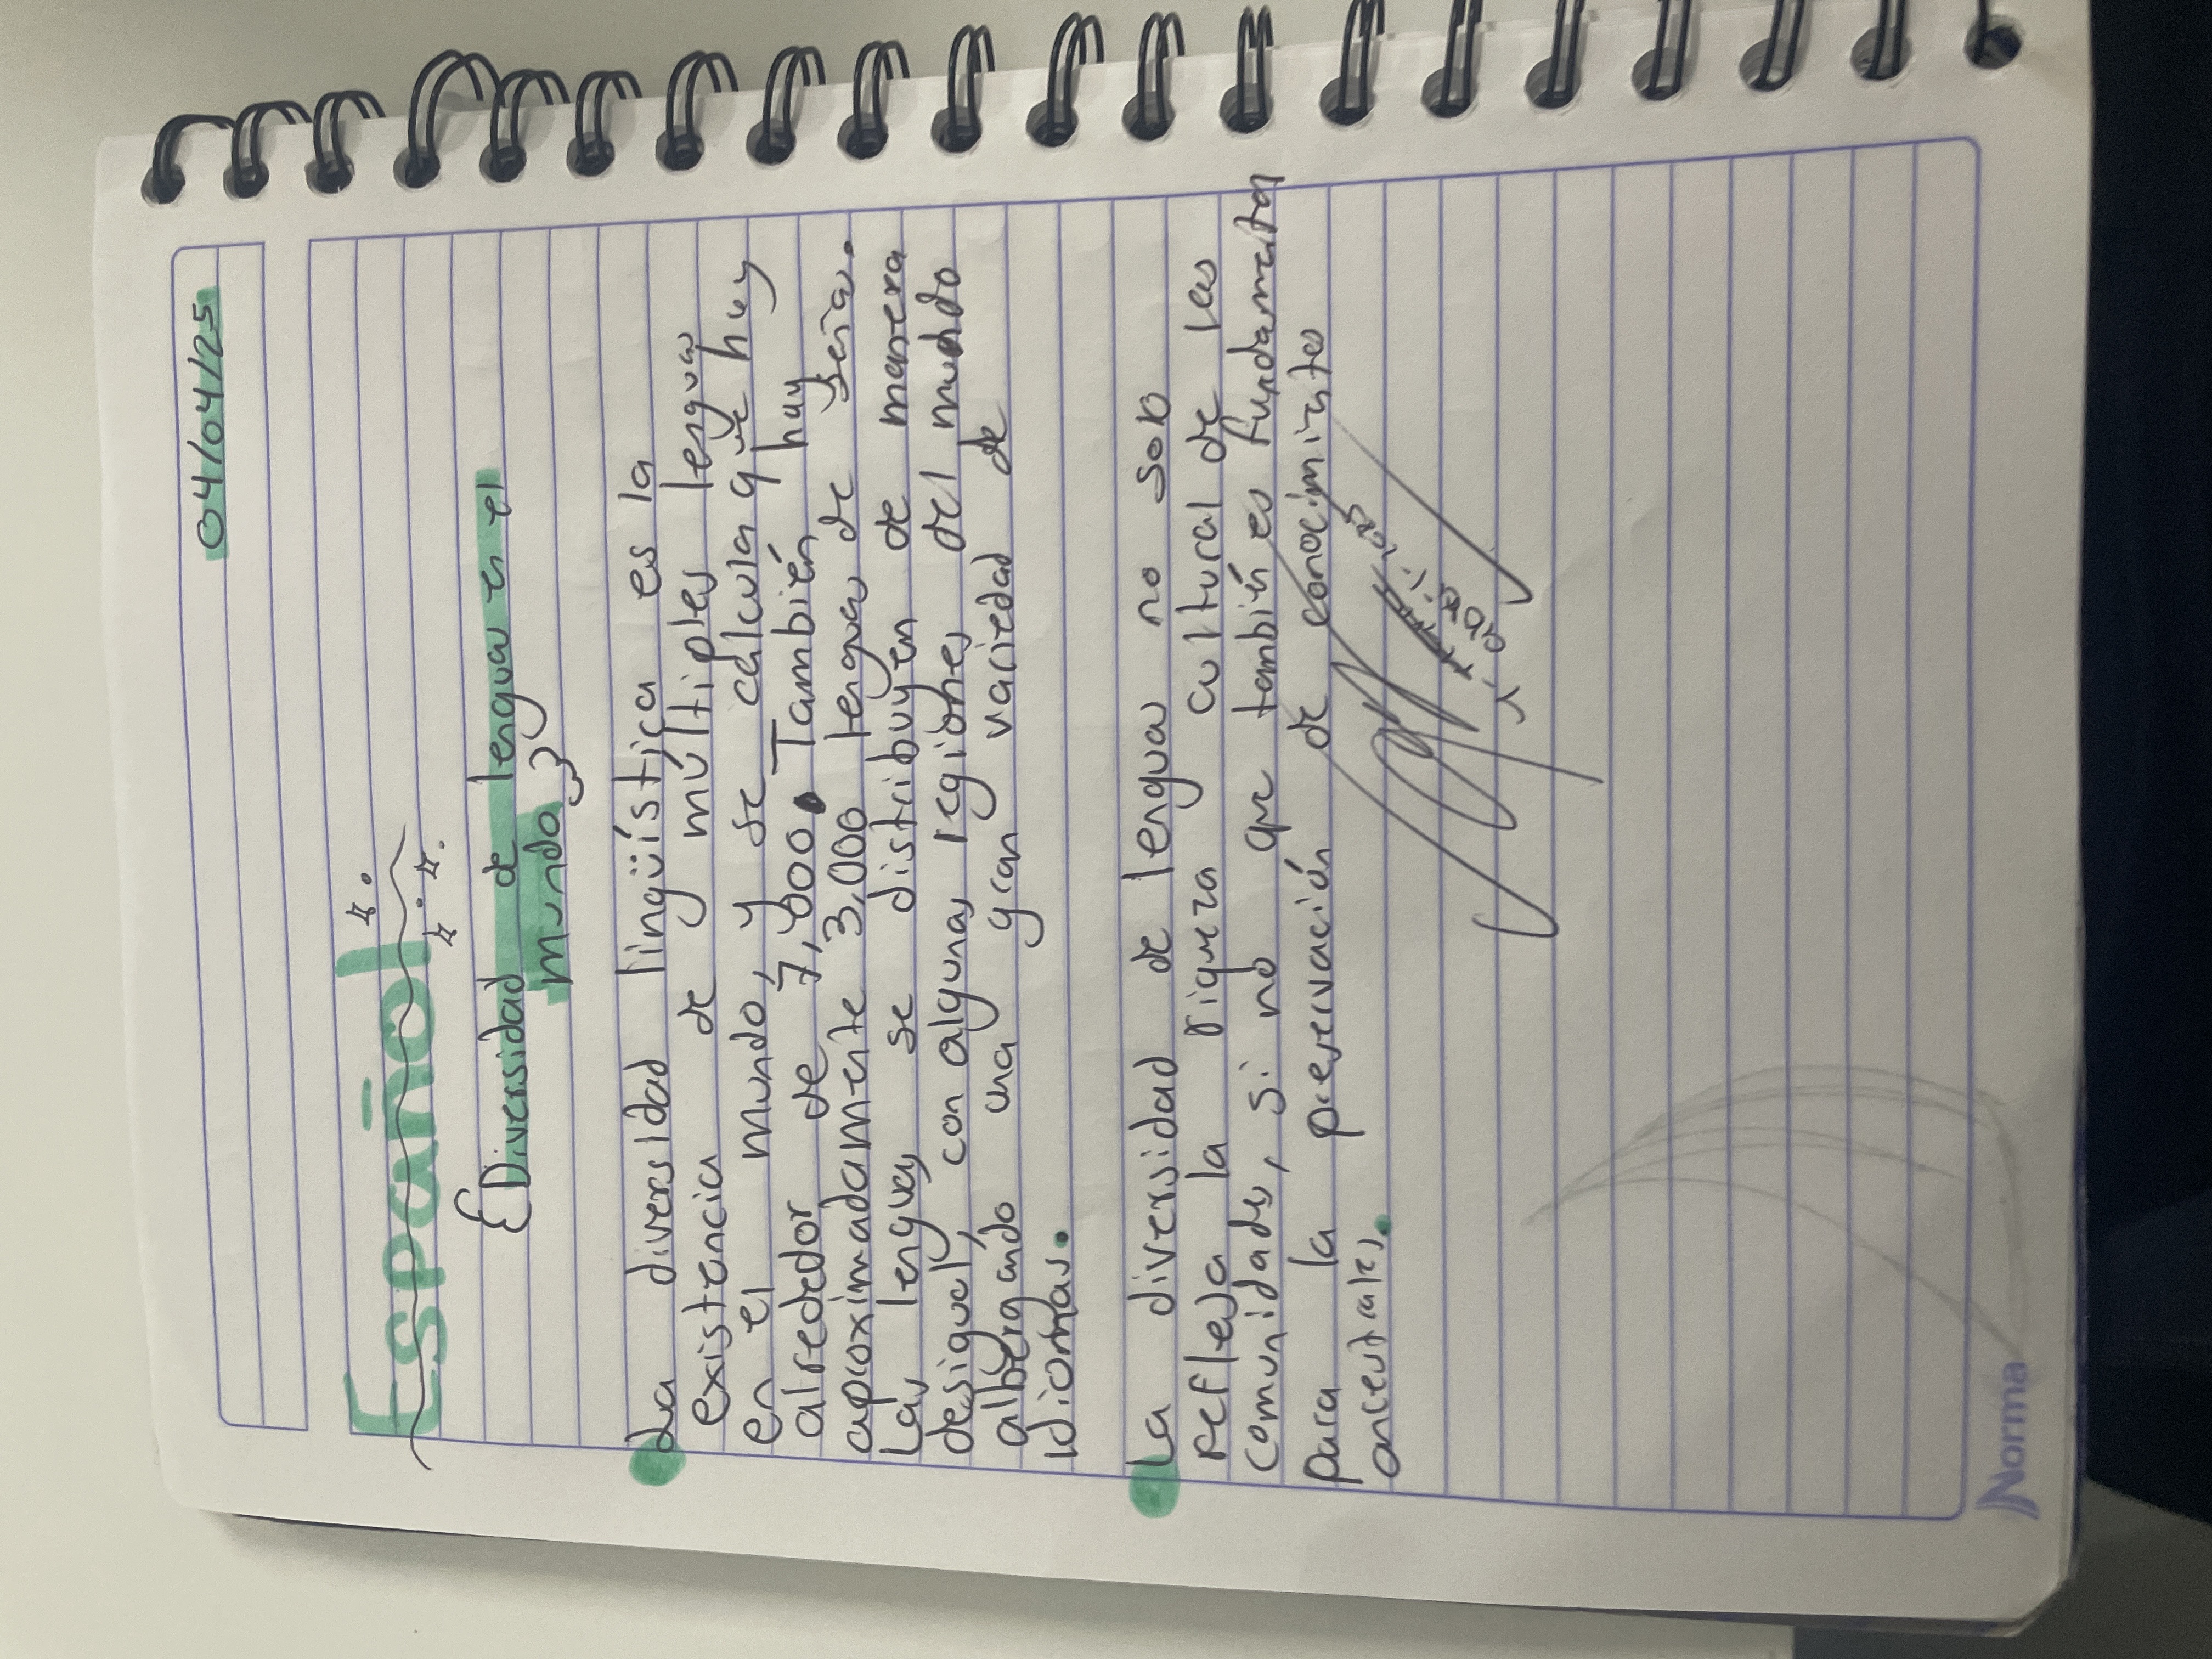 04/04/25
Español
Diversidad de lenguas en el
mundo
La diversidad lingüística es la
existencia de múltiples lenguas
en el mundo, y se calcula que hay
alrededor de 7,000. También hay
aproximadamente 3,000 lenguas de seña.
Las lenguas se distribuyen de manera
desigual, con algunas regiones del mundo
albergando una gran variedad de
idiomas.
La diversidad de lenguas no solo
refleja la riqueza cultural de las
comunidades, si no que también es fundamental
para la preservación de conocimintos
ancestrales.
Norma